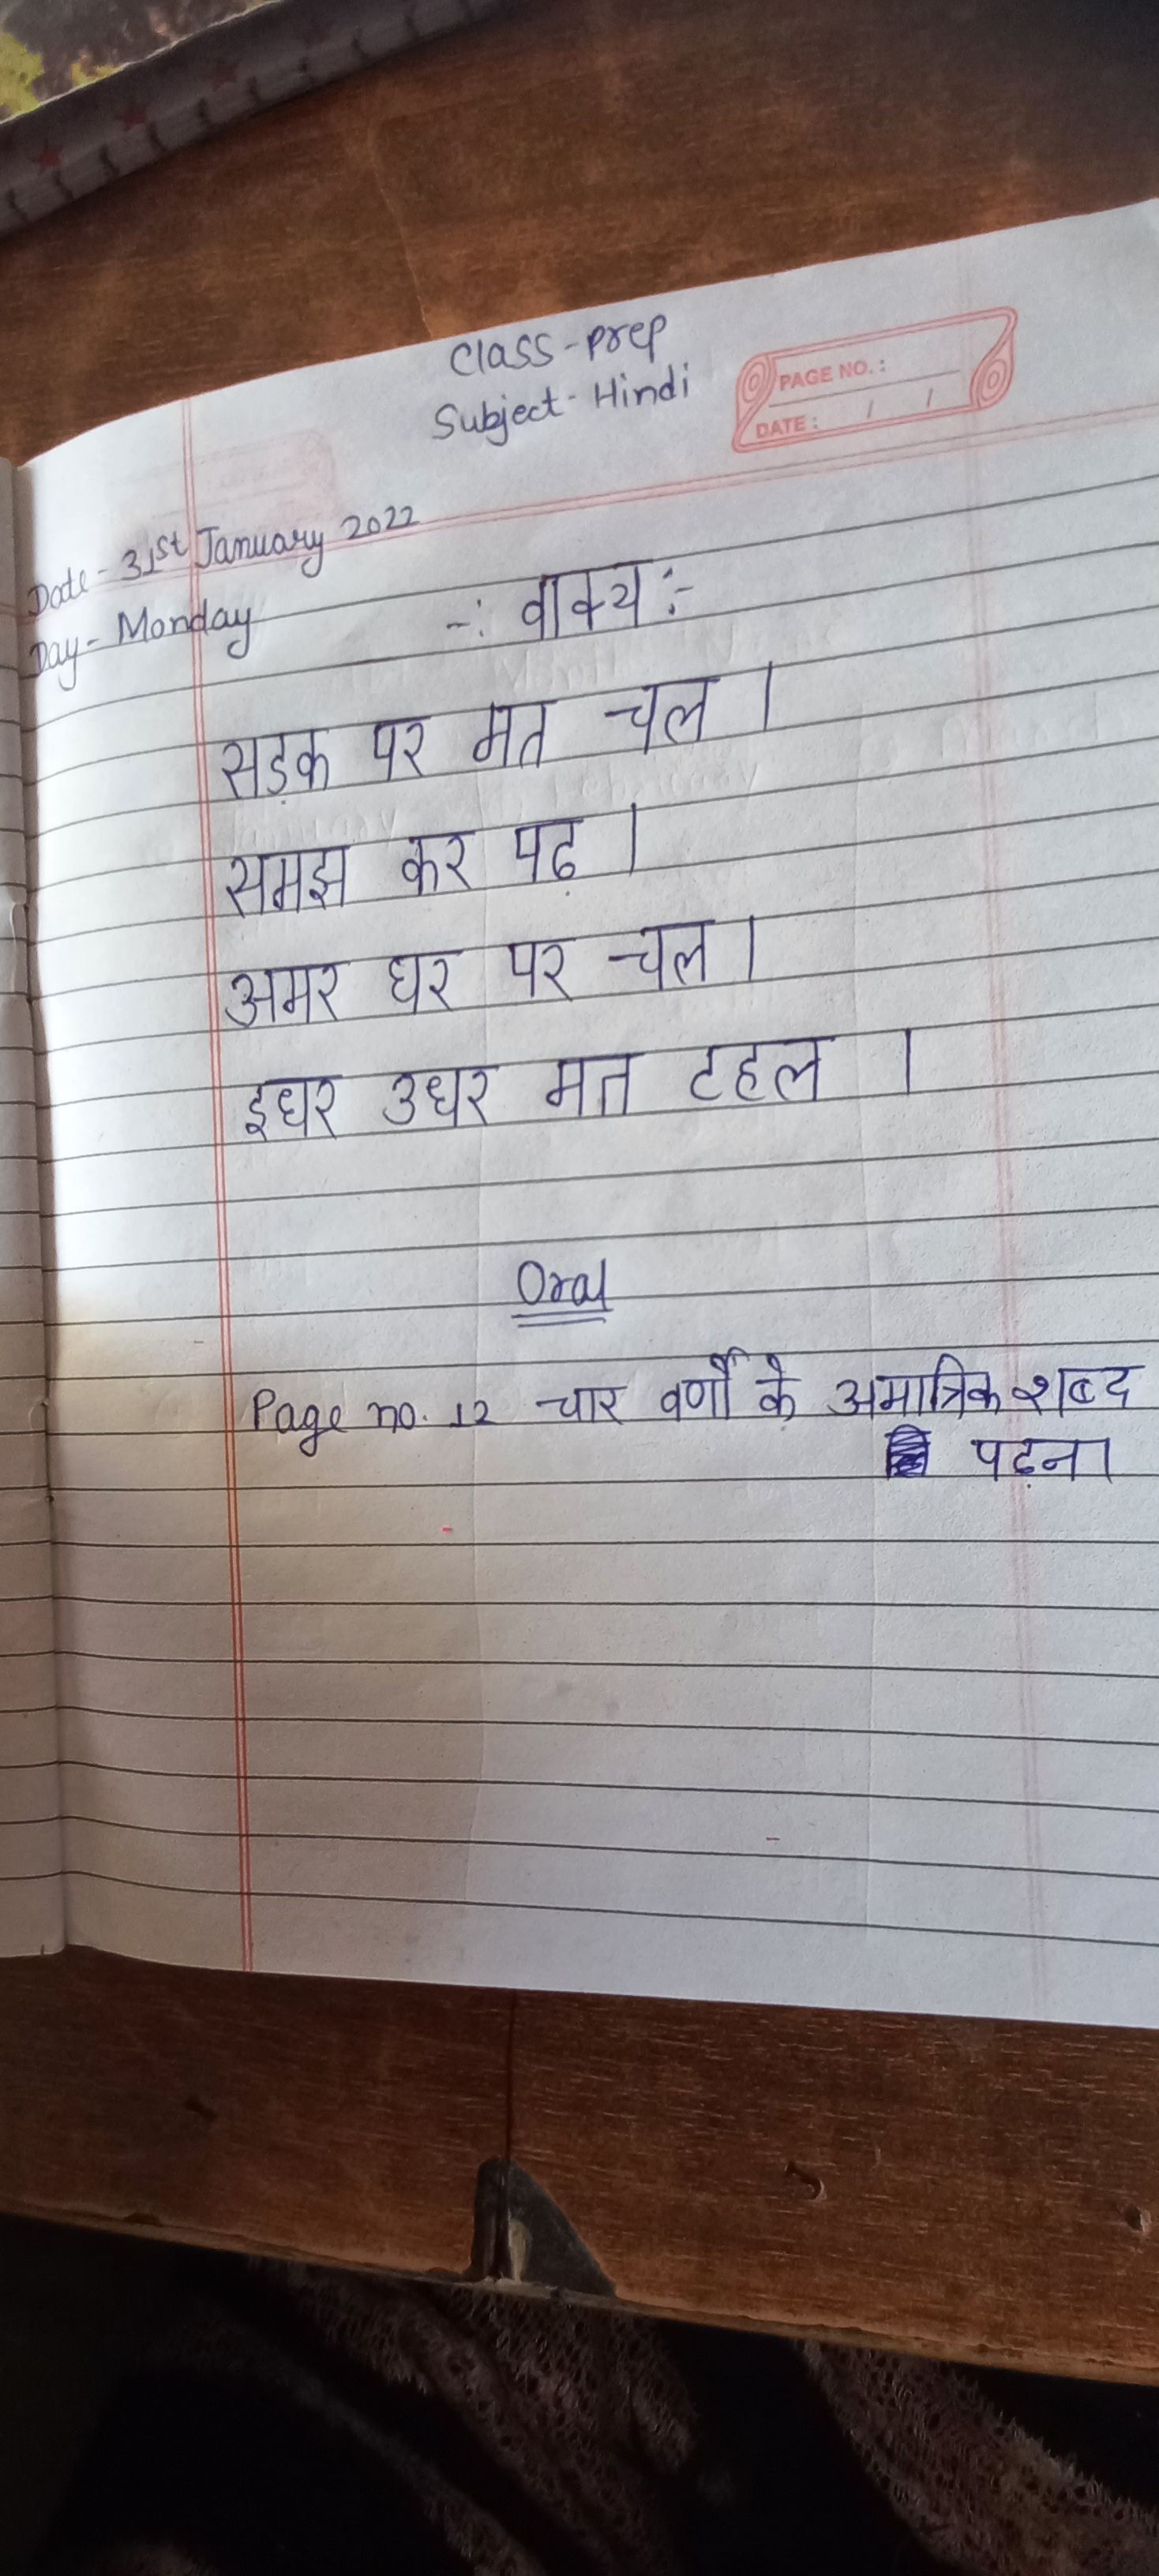 Class-prep
Subject- Hindi
PAGE NO.:
DATE: / /
Date- 31st January 2022
Day- Monday
-: वाक्य :-
सड़क पर मत चल ।
समझ कर पढ़ ।
अमर घर पर चल ।
इधर उधर मत टहल ।
Oral
Page no. 12 चार वर्णों के अमात्रिक शब्द
पढ़ना